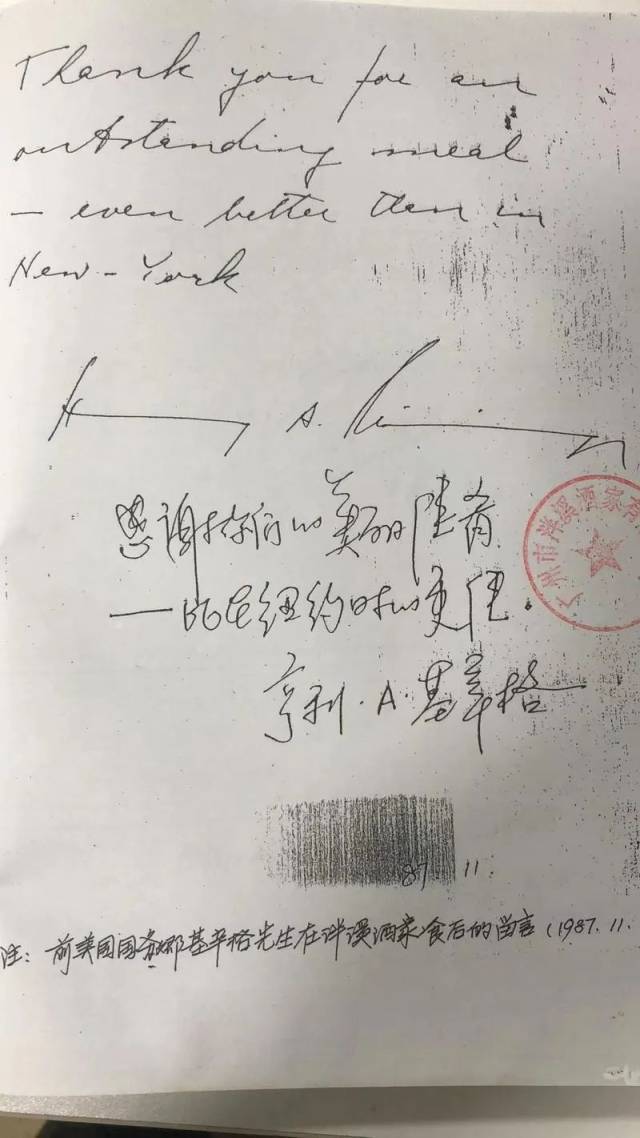 Thank you for an
outstanding meal
— even better than in
New-York
感谢你们的美丽佳肴
——比在纽约时的更佳.
亨利·A·基辛格
广州市泮溪酒家有
87. 11.
注：前美国国务卿基辛格先生在泮溪酒家食后的留言（1987.11.